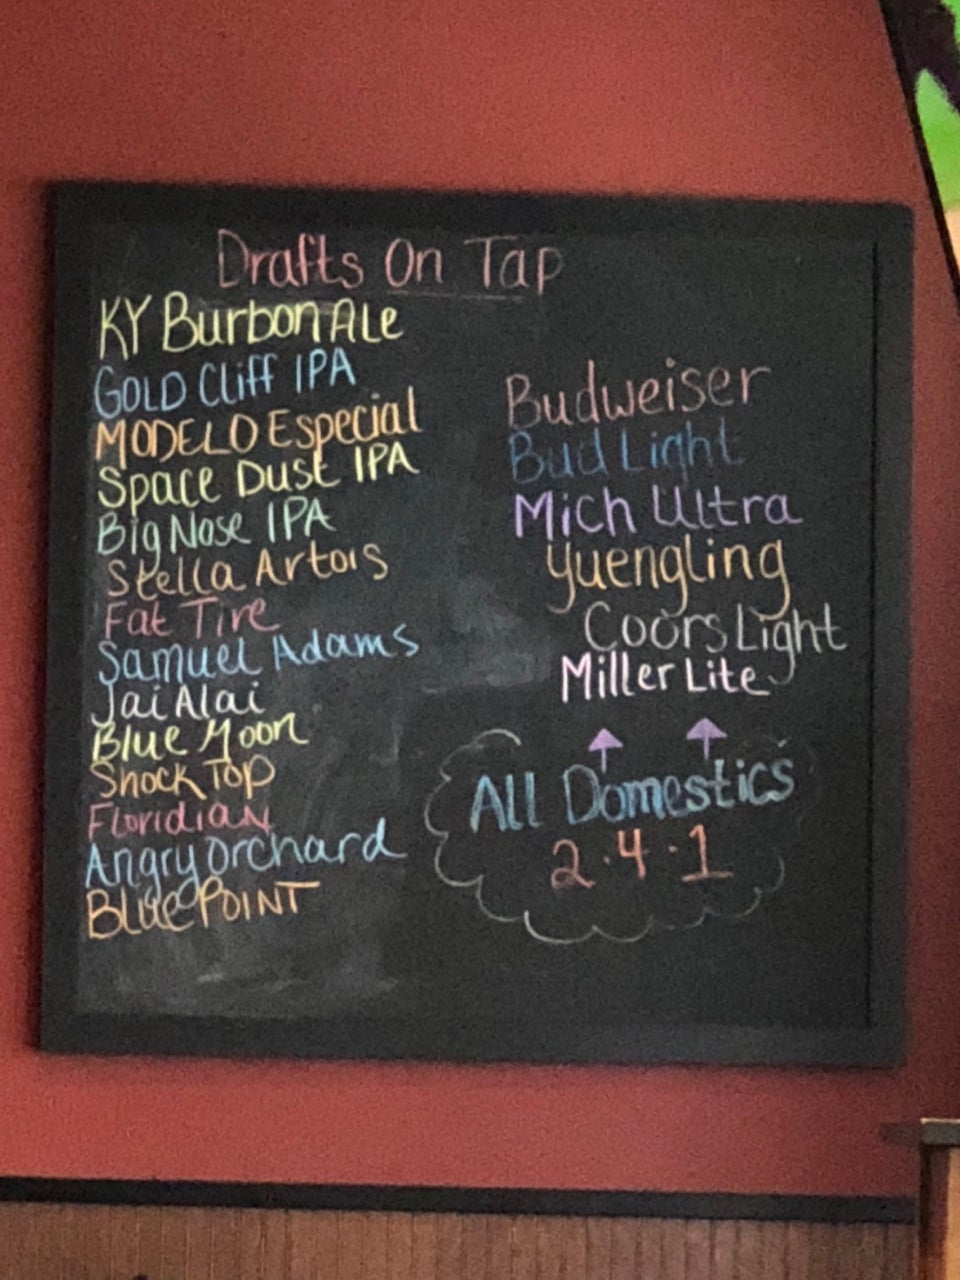 Drafts On Tap
KY Burbon Ale
GOLD Cliff IPA
MODELO Especial
Space Dust IPA
Big Nose IPA
Stella Artois
Fat Tire
Samuel Adams
Jai Alai
Blue Moon
Shock Top
Floridian
Angry Orchard
Blue POINT
Budweiser
Bud Light
Mich Ultra
Yuengling
Coors Light
Miller Lite
All Domestics
2·4·1